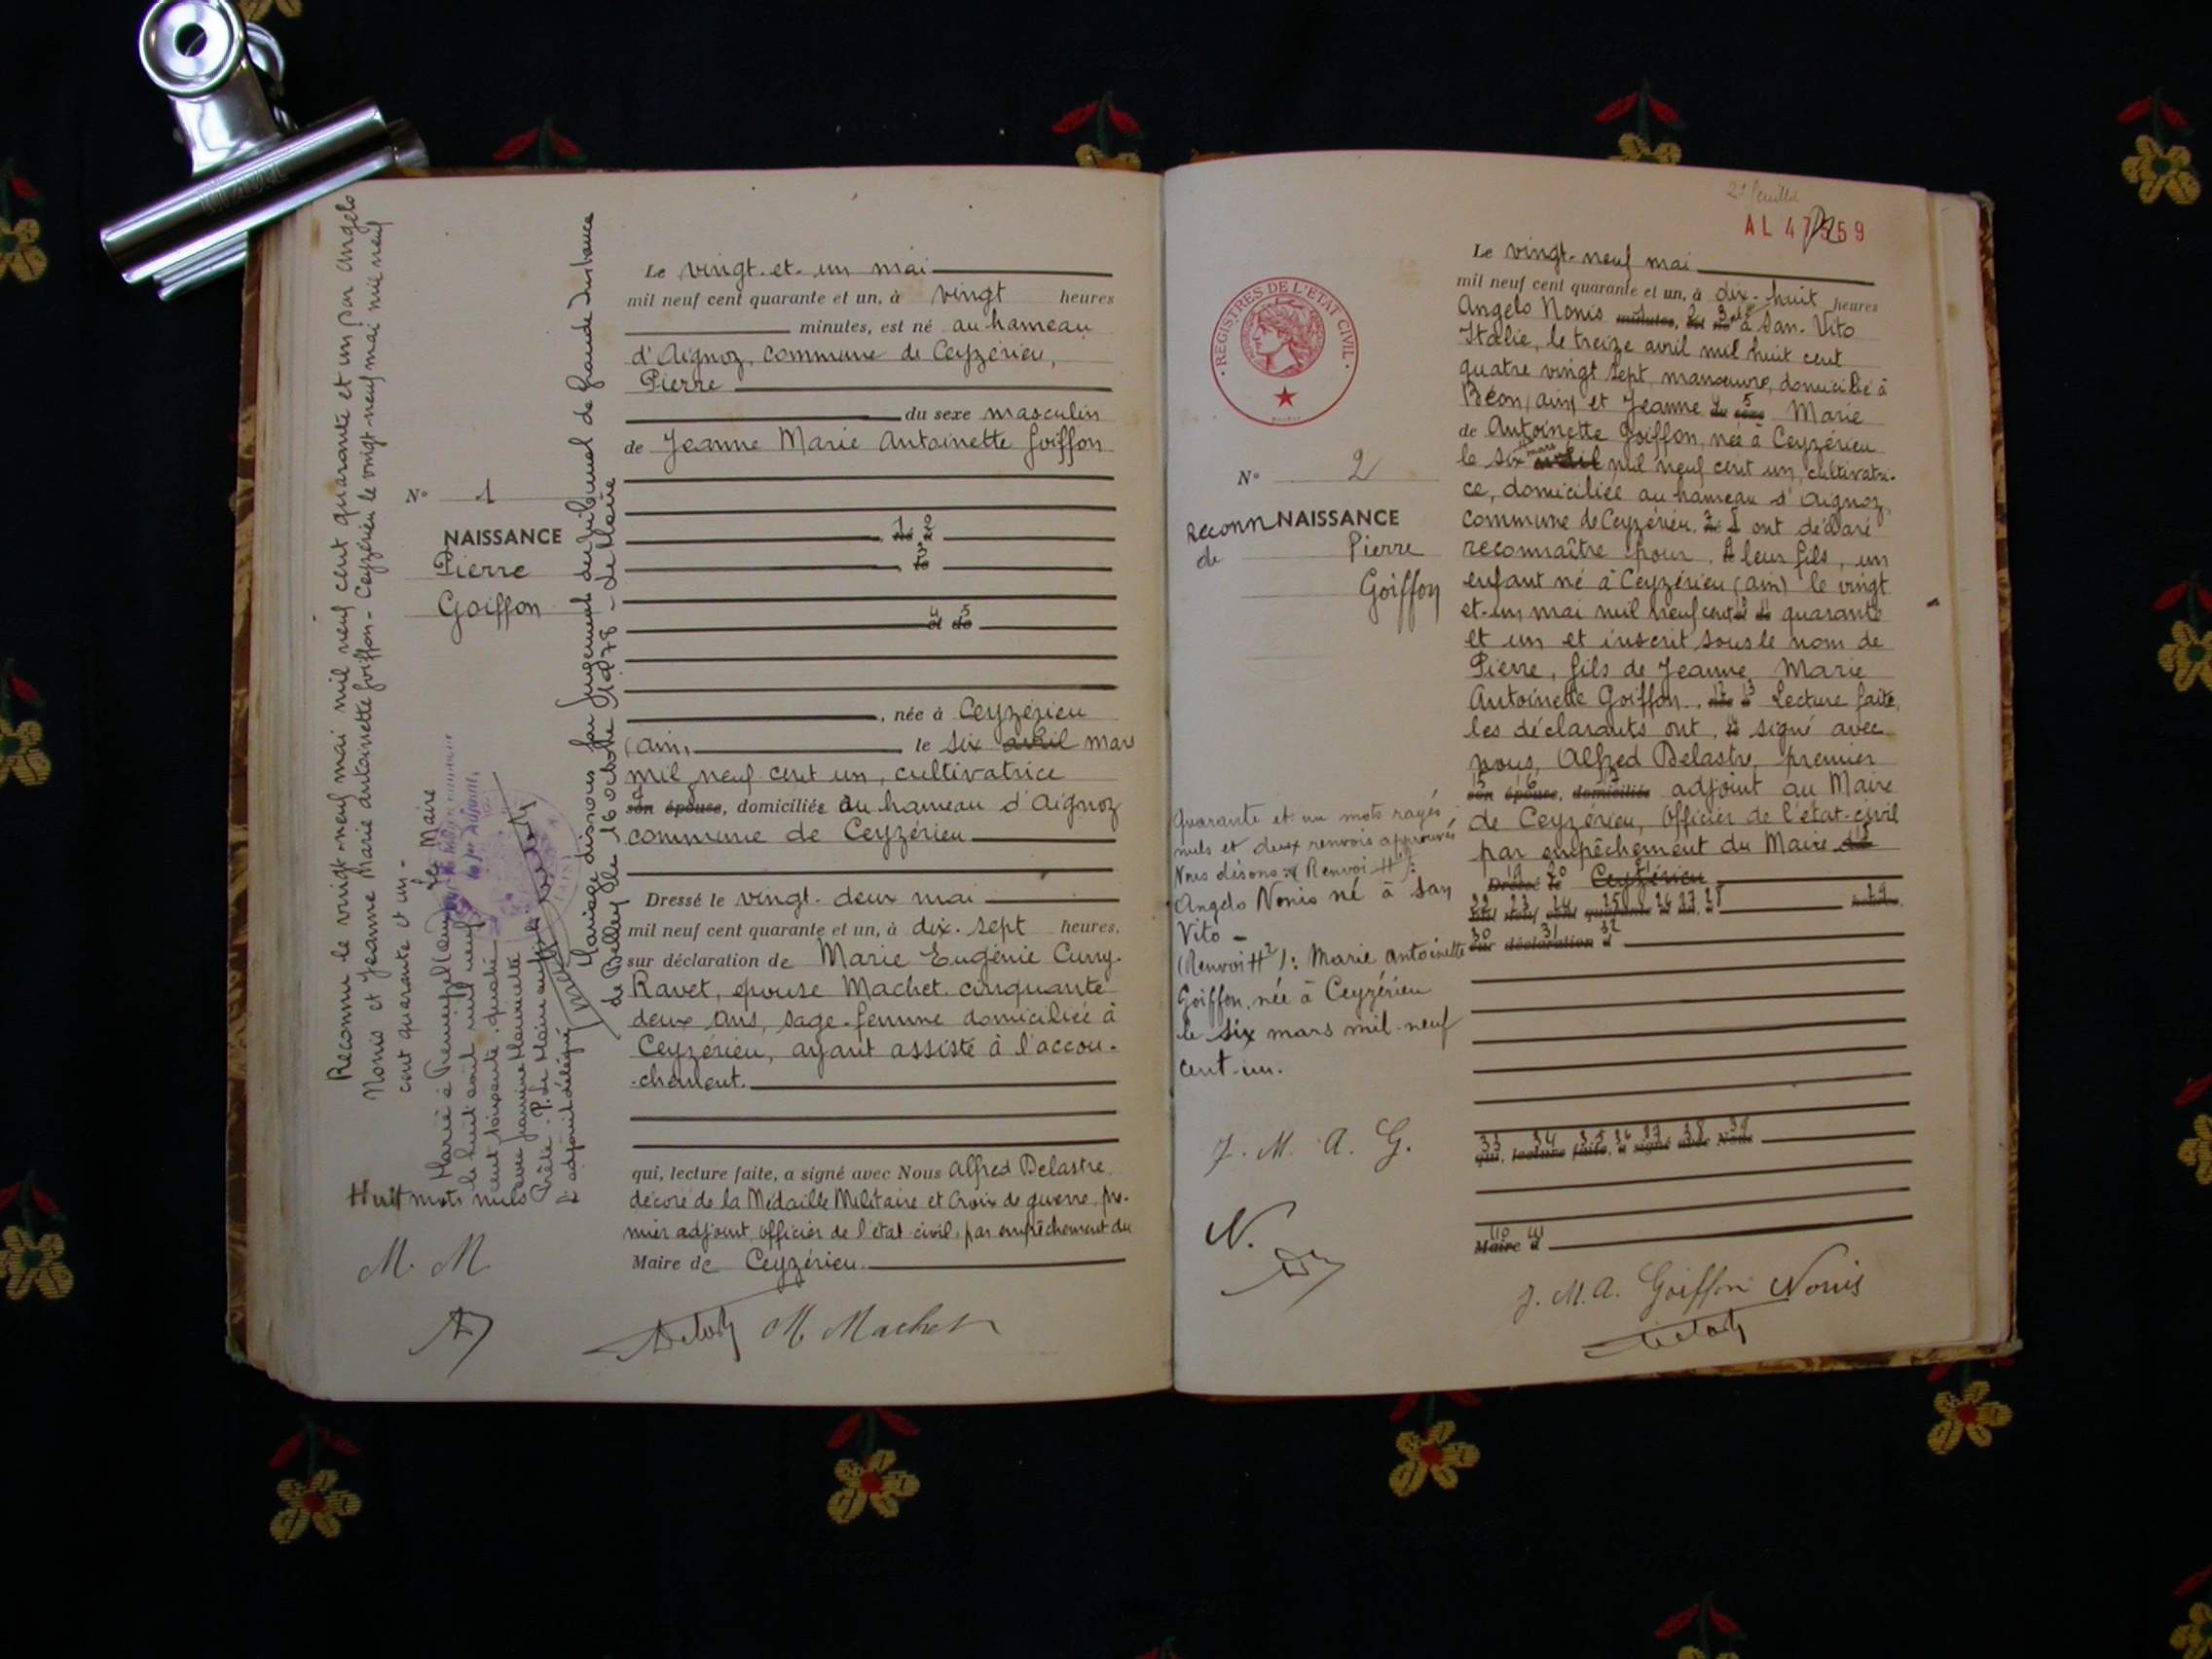 Reconnu le vingt-neuf mai mil neuf cent quarante et un par Angelo
Nonis et Jeanne Marie Antoinette Goiffon - Ceyzérieu le vingt-neuf mai mil neuf
cent quarante et un -
Le Maire
Marié à
le huit août mil neuf
cent soixante quatre
avec Jeannine Henriette
P. Le Maire
L'adjoint délégué
Mariage dissous par jugement du Tribunal de Grande Instance
de Belley le 16 octobre 1978 - Le Maire
N° 1
NAISSANCE
Pierre
Goiffon
Huit mots nuls
M. M.
Le vingt-et-un mai
mil neuf cent quarante et un, à vingt heures
minutes, est né au hameau
d'Aignoz, commune de Ceyzérieu,
Pierre
du sexe masculin
de Jeanne Marie Antoinette Goiffon
, née à Ceyzérieu
(Ain) le six avril mars
mil neuf cent un, cultivatrice
son épouse, domiciliée au hameau d'Aignoz
commune de Ceyzérieu
Dressé le vingt-deux mai
mil neuf cent quarante et un, à dix-sept heures,
sur déclaration de Marie Eugénie Curry-
Ravet, épouse Machet cinquante
deux ans, sage-femme domiciliée à
Ceyzérieu, ayant assisté à l'accou-
-chement.
qui, lecture faite, a signé avec Nous Alfred Delastre
décoré de la Médaille Militaire et Croix de guerre, pre-
mier adjoint, officier de l'état-civil, par empêchement du
Maire de Ceyzérieu
M Machet
2e feuillet
AL 47559
REGISTRES DE L'ETAT CIVIL
N° 2
ReconnNAISSANCE
de Pierre
Goiffon
Quarante et un mots rayés
nuls et deux renvois approuvés
Nous disons: (Renvoi #1):
Angelo Nonis né à San
Vito -
(Renvoi #2): Marie Antoinette
Goiffon, née à Ceyzérieu
le six mars mil-neuf
cent-un.
J. M. A. G.
N.
Le vingt-neuf mai
mil neuf cent quarante et un, à dix-huit heures
Angelo Nonis minutes, est né à San-Vito
Italie, le treize avril mil huit cent
quatre vingt sept, manœuvre, domicilié à
Béon (Ain) et Jeanne du sexe Marie
de Antoinette Goiffon, née à Ceyzérieu
le six mars avril mil neuf cent un, cultivatri-
ce, domiciliée au hameau d'Aignoz,
commune de Ceyzérieu. ont déclaré
reconnaître pour leur fils, un
enfant né à Ceyzérieu (Ain) le vingt
et-un mai mil neuf cent quarante
et un et inscrit sous le nom de
Pierre, fils de Jeanne Marie
Antoinette Goiffon. Lecture faite,
les déclarants ont signé avec
nous, Alfred Delastre, premier
son épouse, domiciliée adjoint au Maire
de Ceyzérieu, Officier de l'état-civil
par empêchement du Maire de
Dressé le Ceyzérieu
mil neuf cent quarante et un, à heures,
sur déclaration d
qui, lecture faite, a signé avec Nous
Maire d
J. M. A. Goiffon Nonis